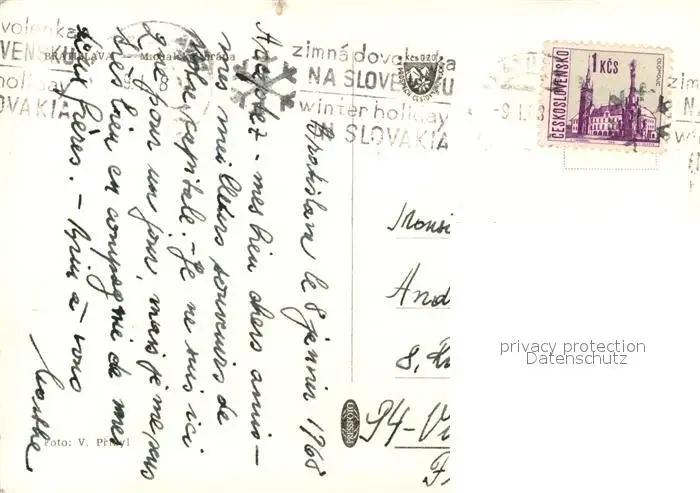 zimná dovolenka
NA SLOVENSKU
winter holiday
IN SLOVAKIA
volenka
VENSKU
holiday
OVAKIA
BRATISLAVA — Michalská brána
Kčs 0,20
ČESKOSLOVENSKO
1 KČS
OLOMOUC
-9.1.68
Bratislava le 8 janvier 1968
Acceptez - mes bien chers amis -
mes meilleurs souvenirs de
notre capitale. - Je ne suis ici
que pour un jour, mais je me suis
très bien en compagnie de mes
frères. - Bien à vous
Marthe
Monsi
And
8, R
94-Vi
F
PRESSFOTO
Foto: V. Přibyl
privacy protection
Datenschutz